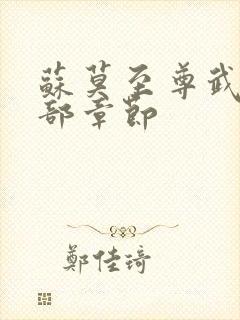 蘇莫至尊武
部章節
鄭佳琦